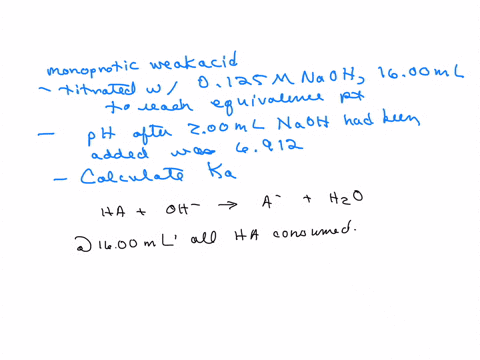 monoprotic weak acid
- titrated w/ 0.125 M NaOH, 16.00 mL
to reach equivalence pt
- pH after 2.00 mL NaOH had been
added was 6.912
- Calculate Ka
HA + OH⁻ → A⁻ + H2O
@ 16.00 mL' all HA consumed.